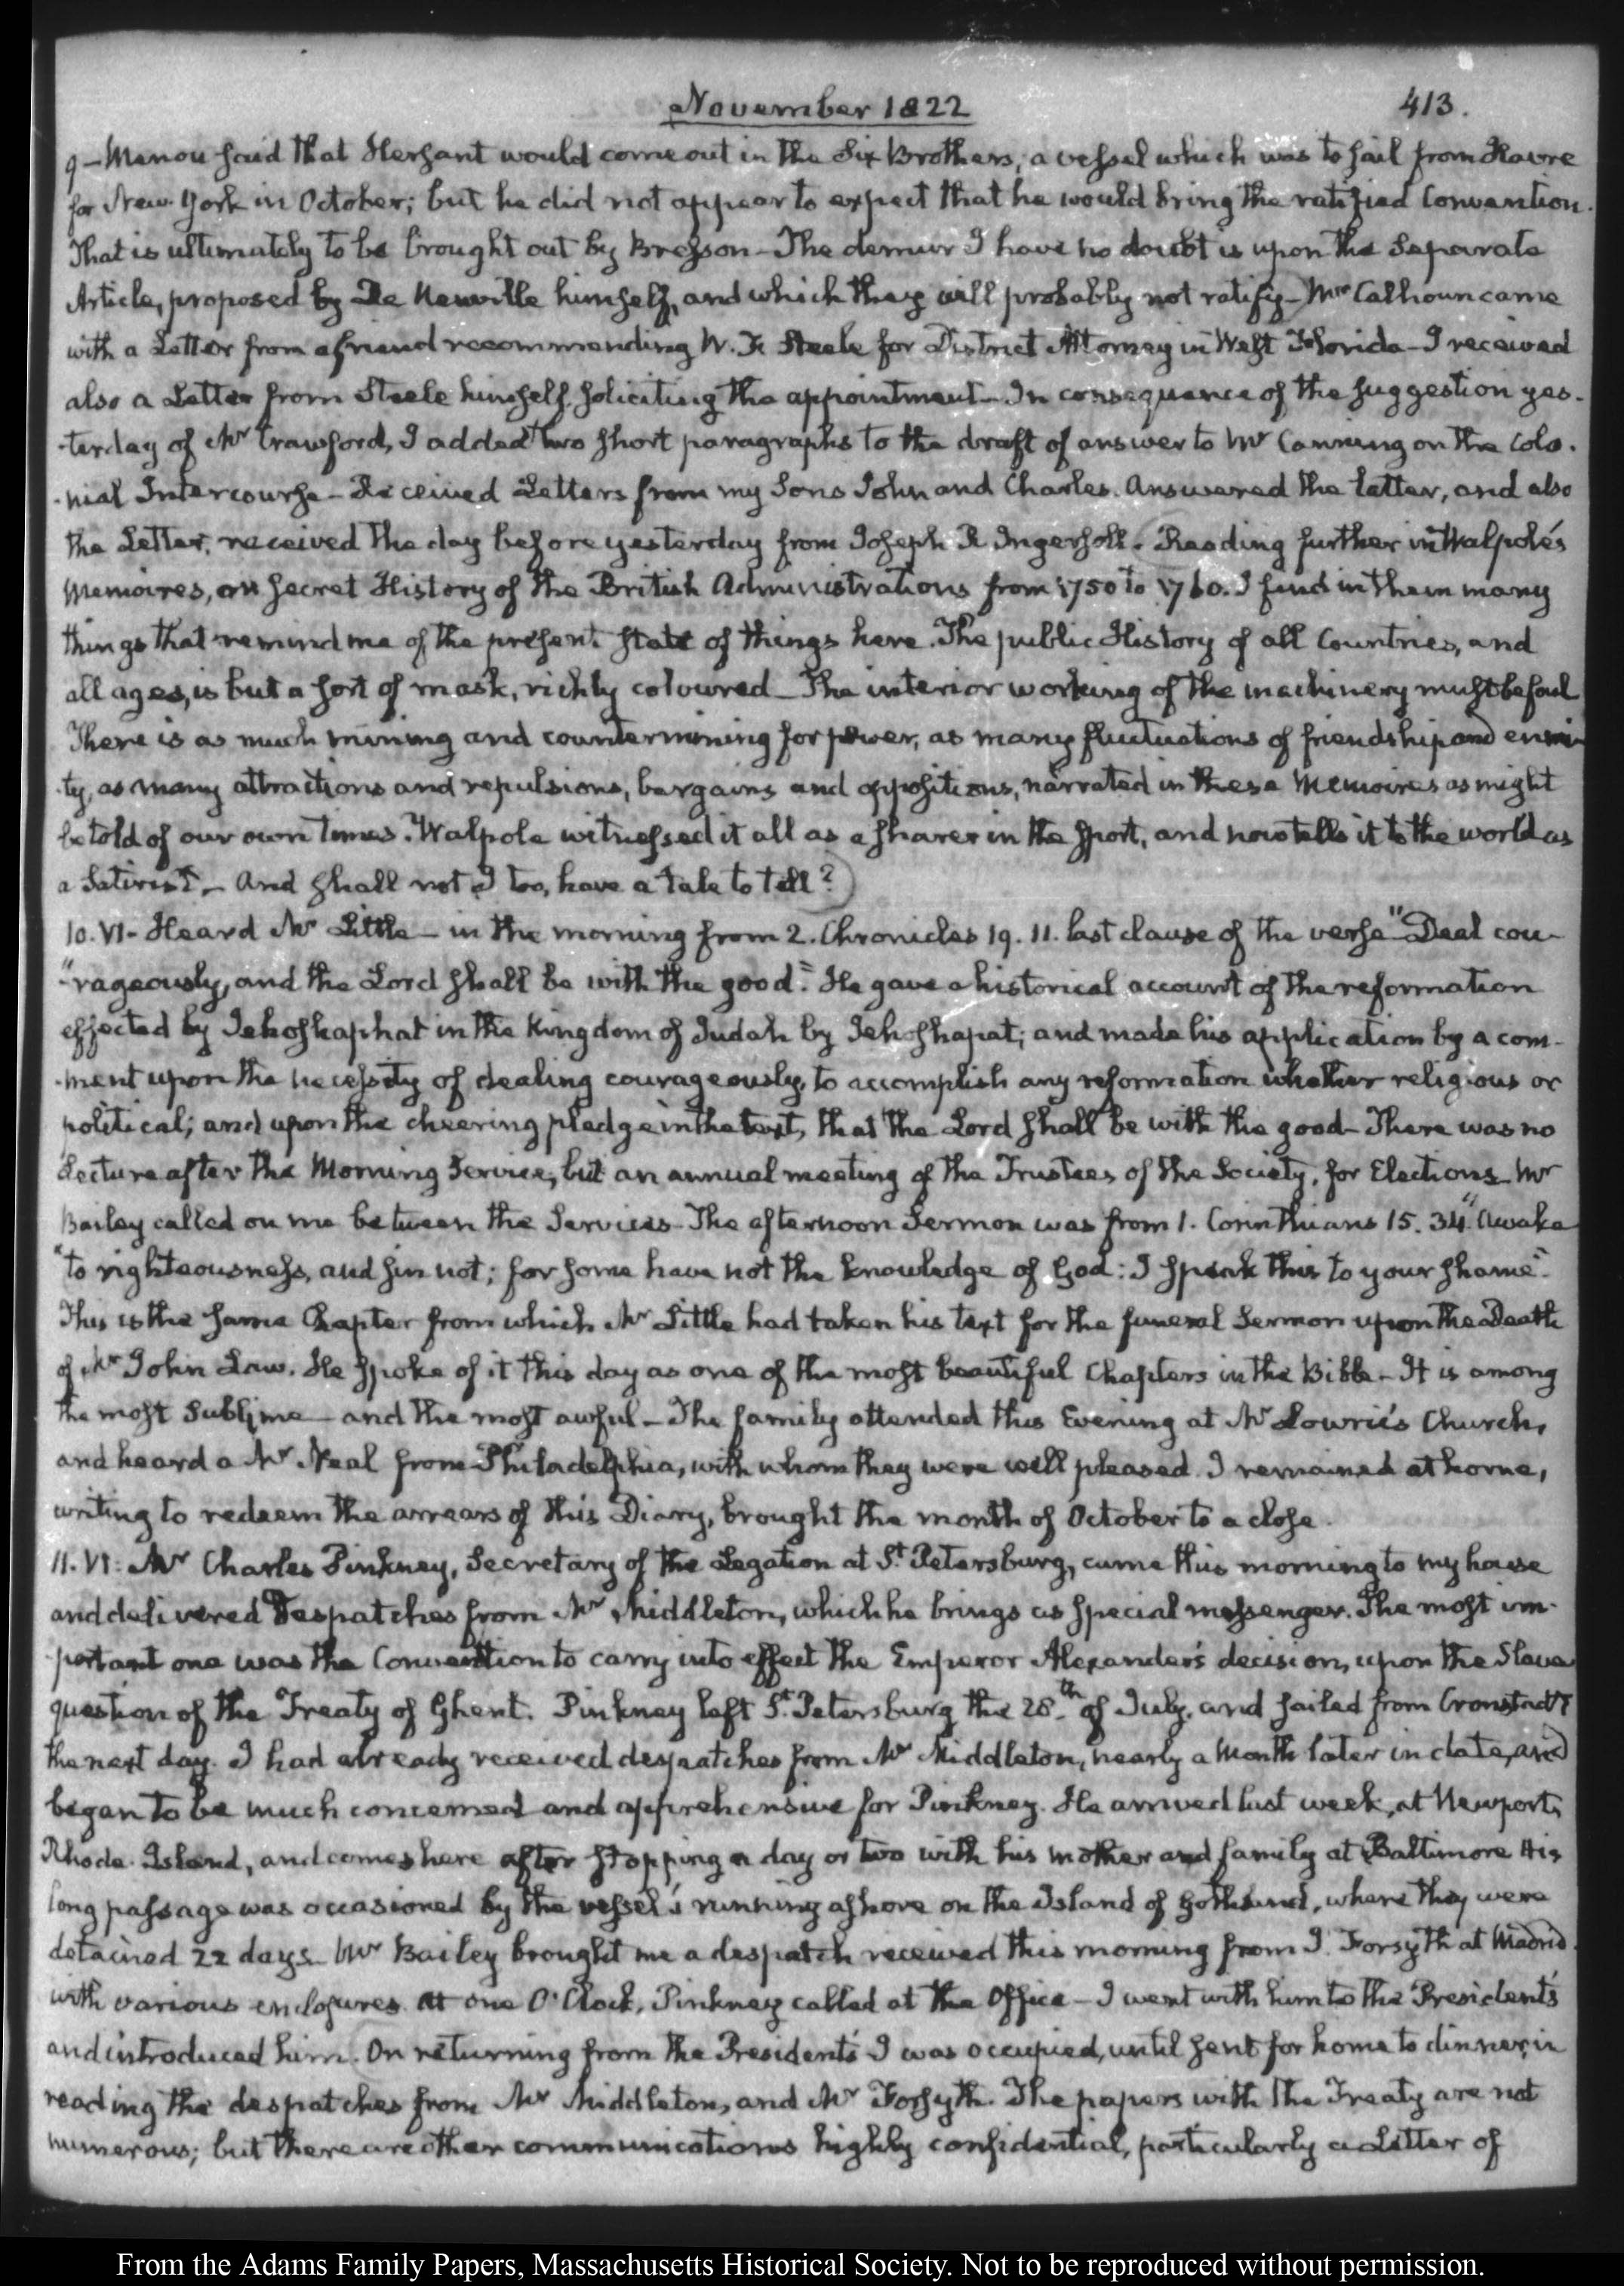 November 1822
413.
9 – Menou said that Hersant would come out in the Six Brothers, a vessel which was to sail from Havre
for New York in October; but he did not appear to expect that he would bring the ratified Convention.
That is ultimately to be brought out by Bresson – The demur I have no doubt is upon the Separate
Article, proposed by De Neuville himself, and which they will probably not ratify – Mr Calhoun came
with a Letter from a friend recommending W. F. Steele for District Attorney in West Florida – I received
also a Letter from Steele himself soliciting the appointment – In consequence of the suggestion yes-
-terday of Mr Crawford, I added two short paragraphs to the draft of answer to Mr Canning on the Colo-
-nial Intercourse – Received Letters from my Sons John and Charles. Answered the latter, and also
the Letter, received the day before yesterday from Joseph R Ingersoll. Reading further in Walpole's
Memoires, or secret History of the British Administrations from 1750 to 1760. I find in them many
things that remind me of the present state of things here. The public History of all Countries, and
all ages, is but a sort of mask, richly coloured – The interior working of the machinery must be foul
There is as much mining and countermining for power, as many fluctuations of friendship and enmi-
-ty, as many attractions and repulsions, bargains and oppositions, narrated in these Memoires as might
be told of our own times. Walpole witnessed it all as a sharer in the sport, and now tells it to the world as
a Satirist – And shall not I too, have a tale to tell?
10. VI – Heard Mr Little – in the morning from 2. Chronicles 19. 11. last clause of the verse "Deal cou-
"-rageously, and the Lord shall be with the good." He gave a historical account of the reformation
effected by Jehoshaphat in the Kingdom of Judah by Jehoshapat; and made his application by a com-
-ment upon the necessity of dealing courageously, to accomplish any reformation whether religious or
political; and upon the cheering pledge in the text, that the Lord shall be with the good – There was no
Lecture after the Morning Service, but an annual meeting of the Trustees of the Society, for Elections – Mr
Bailey called on me between the Services – The afternoon Sermon was from 1. Corinthians 15. 34. "Awake
"to righteousness, and sin not; for some have not the knowledge of God: I speak this to your shame".
This is the same Chapter from which Mr Little had taken his text for the funeral Sermon upon the Death
of Mr John Law. He spoke of it this day as one of the most beautiful Chapters in the Bible – It is among
the most Sublime – and the most awful – The family attended this Evening at Mr Lowrie's Church,
and heard a Mr Neal from Philadelphia, with whom they were well pleased. I remained at home,
writing to redeem the arrears of this Diary, brought the month of October to a close.
11. VI: Mr Charles Pinkney, Secretary of the Legation at St Petersburg, came this morning to my house
and delivered Despatches from Mr Middleton, which he brings as special messenger. The most im-
-portant one was the Convention to carry into effect the Emperor Alexander's decision, upon the Slave
question of the Treaty of Ghent. Pinkney left St Petersburg the 28th of July, and sailed from Cronstadt
the next day. I had already received despatches from Mr Middleton, nearly a Month later in date, and
began to be much concerned and apprehensive for Pinkney. He arrived last week, at Newport,
Rhode Island, and comes here after stopping a day or two with his mother and family at Baltimore His
long passage was occasioned by the vessel's running ashore on the Island of Gothland, where they were
detained 22 days – Mr Bailey brought me a despatch received this morning from J. Forsyth at Madrid
with various enclosures. At one O'Clock, Pinkney called at the Office – I went with him to the President's
and introduced him. On returning from the President's I was occupied, until sent for home to dinner, in
reading the despatches from Mr Middleton, and Mr Forsyth. The papers with the Treaty are not
numerous; but there are other communications highly confidential, particularly a Letter of
From the Adams Family Papers, Massachusetts Historical Society. Not to be reproduced without permission.